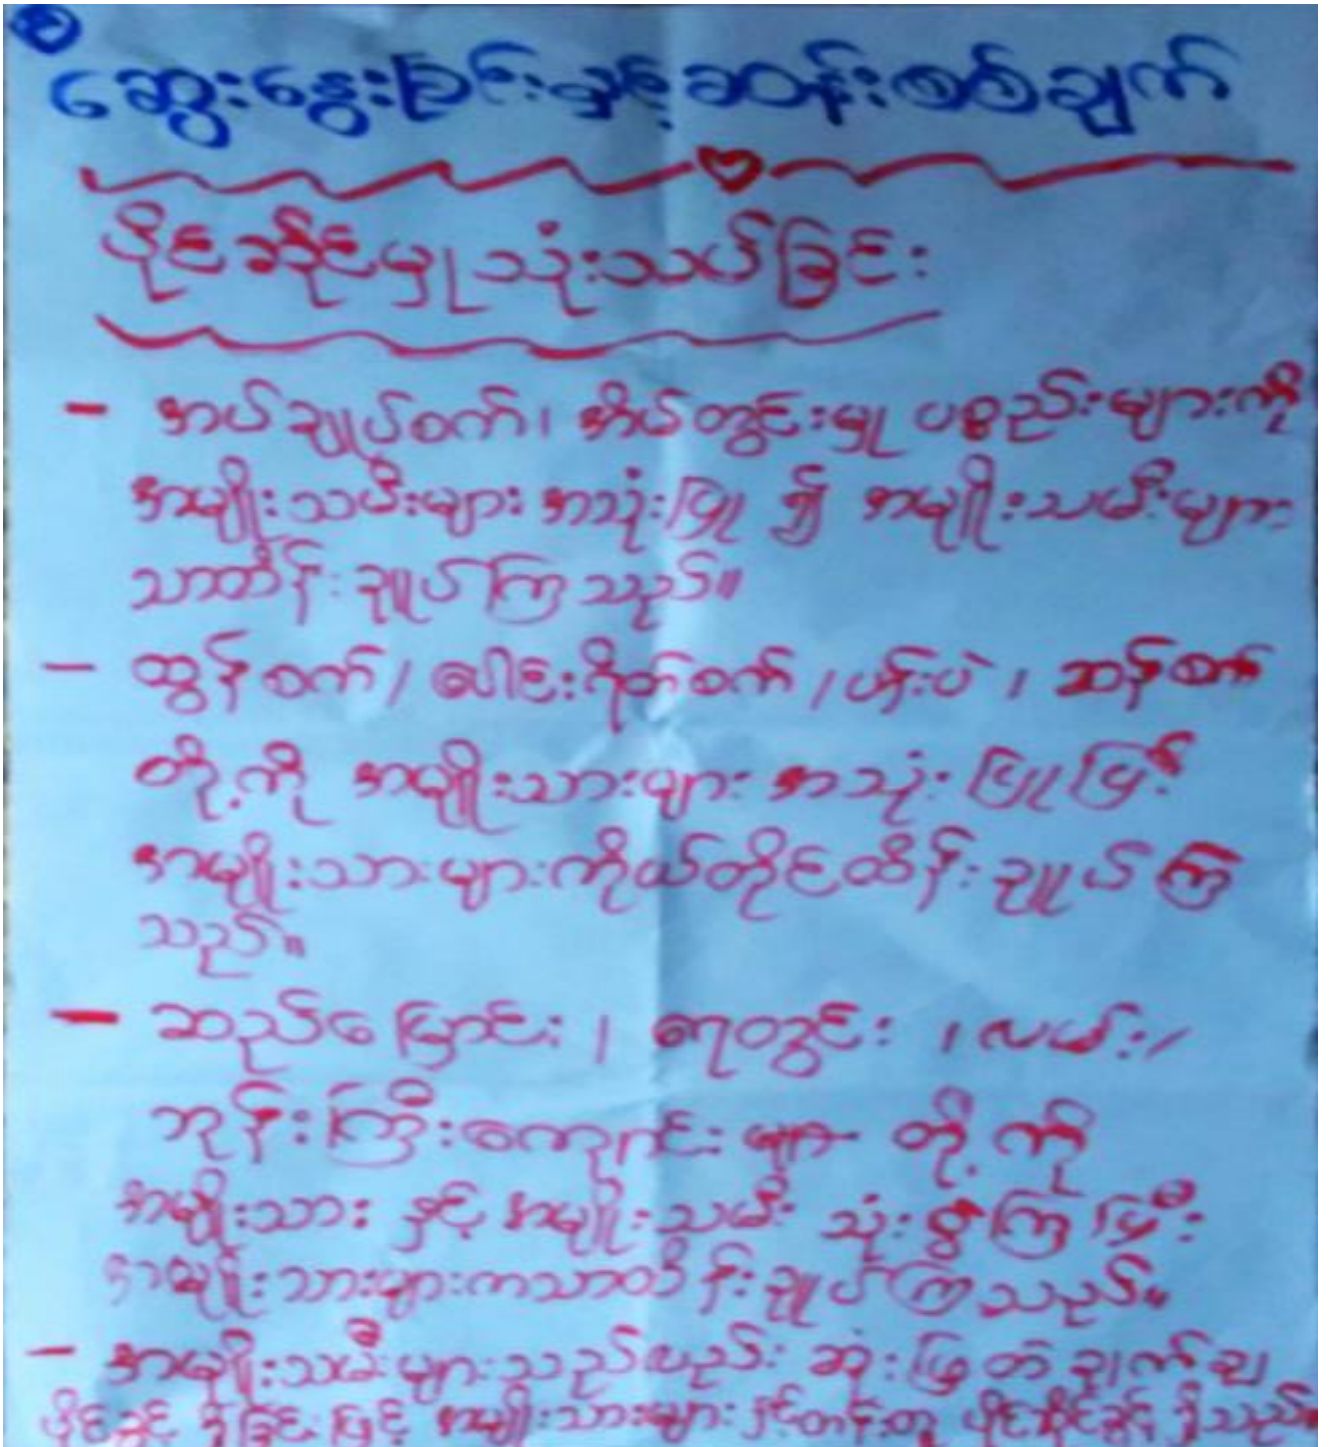 ၅
ဆွေးနွေးခြင်းနှင့်ဆန်းစစ်ချက်
ပိုင်ဆိုင်မှုသုံးသပ်ခြင်း
- အပ်ချုပ်စက်၊ အိမ်တွင်းမှု ပစ္စည်းများကို
အမျိုးသမီးများ အသုံးပြု ၍ အမျိုးသမီးများ
သာထိန်းချုပ်ကြသည်။
- ထွန်စက်/ ခေါင်းရိတ်စက် /ပန်းပဲ ၊ ဆန်စက်
တို့ကို အမျိုးသားများ အသုံးပြုပြီး
အမျိုးသားများကိုယ်တိုင်ထိန်းချုပ်ကြ
သည်။
- ဆည်မြောင်း / ရေတွင်း ၊လမ်း/
ဘုန်းကြီးကျောင်းများ တို့ကို
အမျိုးသား နှင့် အမျိုးသမီး သုံးစွဲကြပြီး
အမျိုးသားများကသာထိန်းချုပ်ကြသည်။
- အမျိုးသမီးများသည်လည်း ဆုံးဖြတ်ချက်ချ
ပိုင်ခွင့် ရှိခြင်းဖြင့် အမျိုးသားများနှင့်တန်းတူ ပိုင်ဆိုင်ခွင့် ရှိသည်။